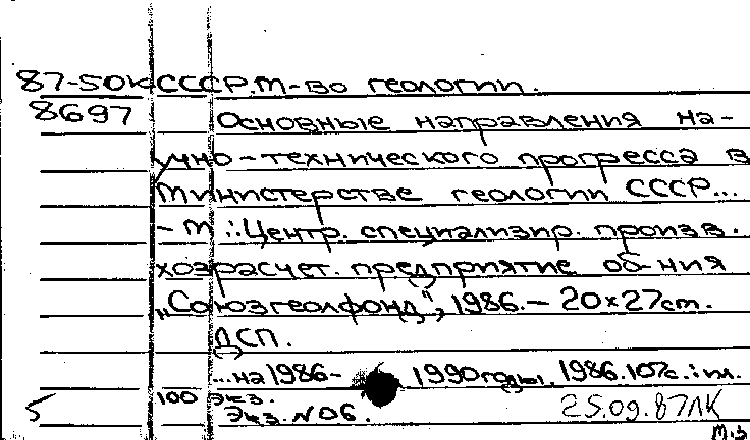 87-50к СССР. М-во геологии.
8697 Основные направления на-
учно-технического прогресса в
Министерстве геологии СССР...
- М.: Центр. специализир. произв.
хозрасчет. предприятие об-ния
„Союзгеолфонд", 1986. - 20x27см.
ДСП.
...на 1986- 1990 годы. 1986. 107с.: ил.
5 100 экз.
Экз. №06. 25.09.87ЛК